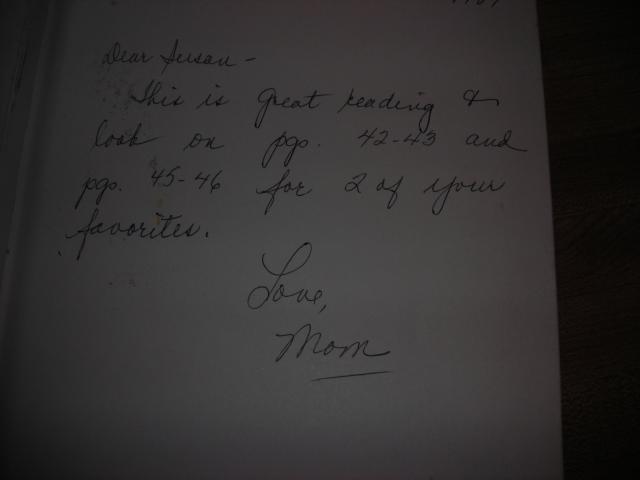 Dear Susan -
This is great reading &
look on pgs. 42-43 and
pgs. 45-46 for 2 of your
favorites.
Love,
Mom